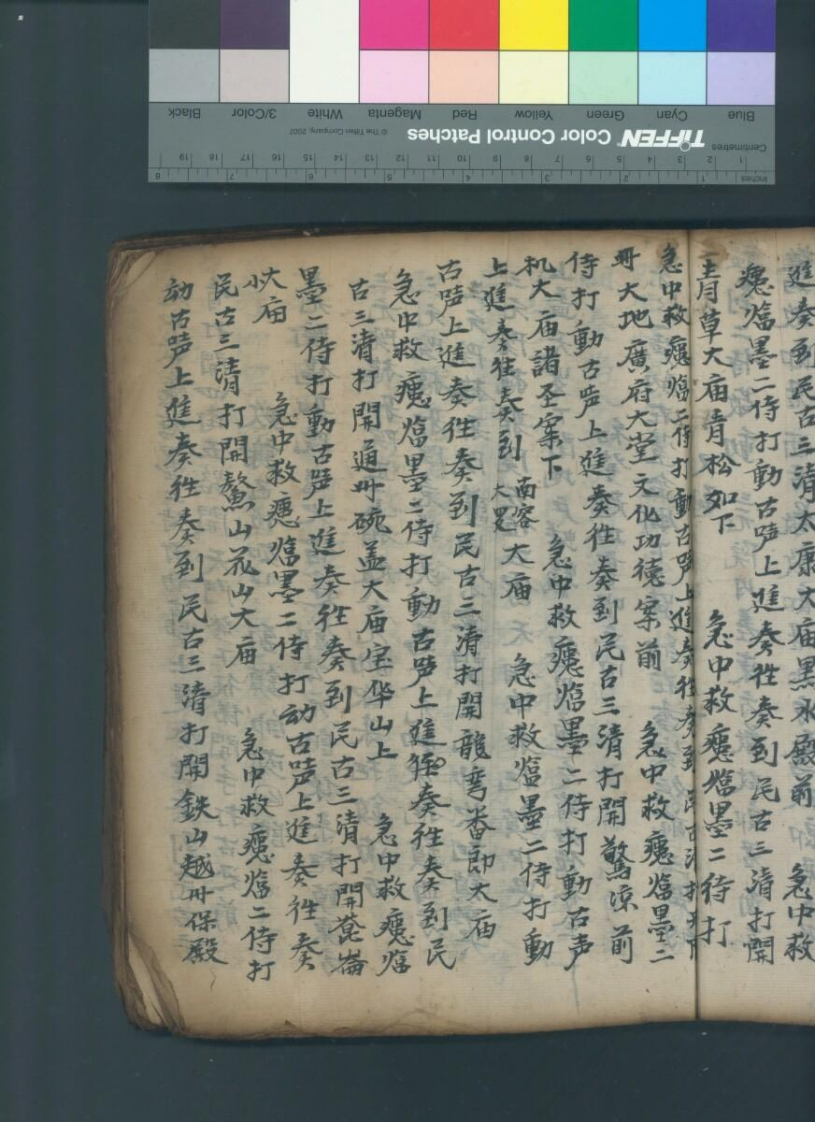 Blue Cyan Green Yellow Red Magenta White 3/Color Black
Centimetres TIFFEN Color Control Patches © The Tiffen Company, 2007
Inches
進奏到民古三清太康大庙黒水殿前 急中救
㾮熖墨二侍打動古𠰻上進奏徃奏到民古三清打開
青草大庙青松如下 急中救㾮熖墨二侍打
急中救㾮熖二侍打動古𠰻上進奏徃奏到民古
卌大地廣府大堂文化功德案前 急中救㾮熖墨二
侍打動古𠰻上進奏徃奏到民古三清打開驚凉前
机大庙諸圣案下 急中救㾮熖墨二侍打動古声
上進奏徃奏到 大 南容大庙 急中救熖墨二侍打動
古𠰻上進奏徃奏到民古三清打開龍鸾番郎大庙
急中救㾮熖墨二侍打動古𠰻上進奏徃奏到民
古三清打開通卌碗盖大庙宝华山上 急中救㾮熖
墨二侍打動古𠰻上進奏徃奏到民古三清打開菎崙
大庙 急中救㾮熖墨二侍打动古𠰻上進奏徃奏
民古三清打開鰲山花山大庙 急中救㾮熖二侍打
动古𠰻上進奏徃奏到民古三清打開鉄山越卌保殿